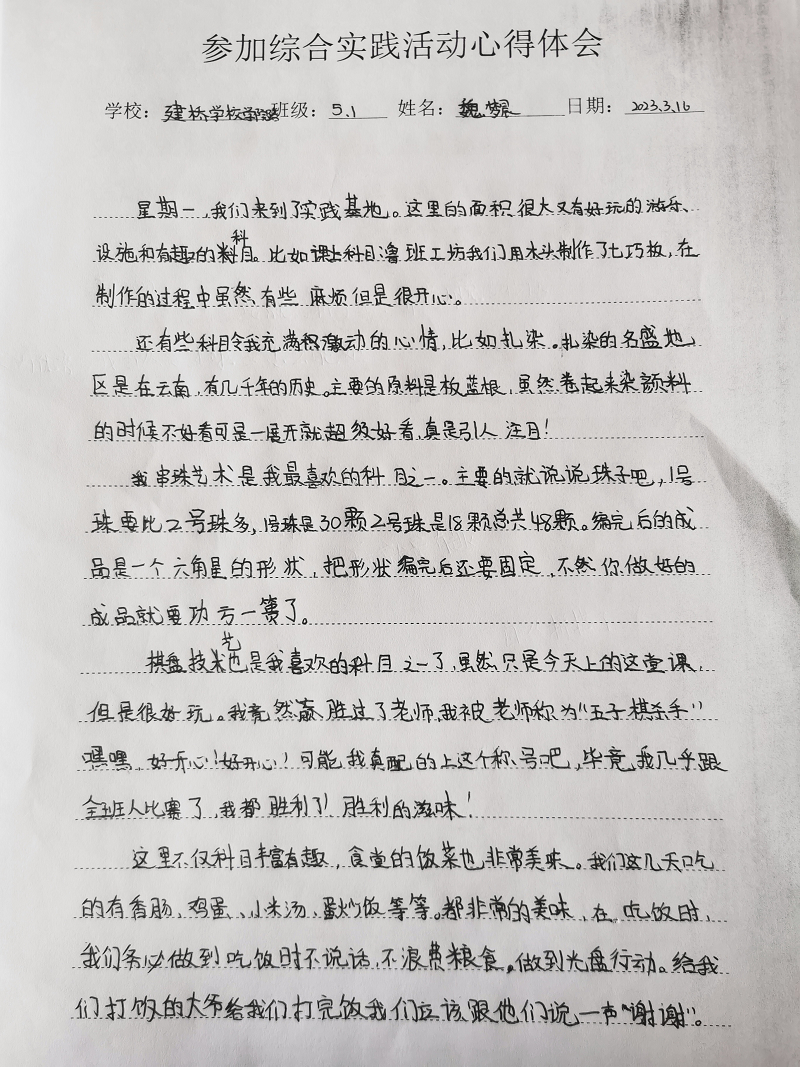 参加综合实践活动心得体会
学校：建桥学校 班级：5.1 姓名：魏 日期：2023.3.16
星期一，我们来到了实践基地。这里的面积很大又有好玩的游乐、
设施和有趣的科目。比如课上科目鲁班工坊我们用木头制作了七巧板，在
制作的过程中虽然有些麻烦但是很开心。
还有些科目令我充满积激动的心情，比如扎染。扎染的名盛地
区是在云南，有几千年的历史。主要的原料是板蓝根，虽然卷起来染颜料
的时候不好看可是一展开就超级好看，真是引人注目！
我串珠艺术是我最喜欢的科目之一。主要的就说说珠子吧，1号
珠要比2号珠多，1号珠是30颗2号珠是18颗总共48颗。编完后的成
品是一个六角星的形状，把形状编完后还要固定，不然你做好的
成品就要功亏一篑了。
棋盘技艺也是我喜欢的科目之一了，虽然只是今天上的这堂课，
但是很好玩。我竟然赢胜过了老师，我被老师称为“五子棋杀手”
嘿嘿，好开心！好开心！可能我真配的上这个称号吧，毕竟，我几乎跟
全班人比赛了，我都胜利了！胜利的滋味！
这里不仅科目丰富有趣，食堂的饭菜也非常美味。我们这几天吃
的有香肠、鸡蛋、小米汤、蛋炒饭等等。都非常的美味，在吃饭时，
我们务必做到吃饭时不说话，不浪费粮食，做到光盘行动。给我
们打饭的大爷给我们打完饭我们应该跟他们说一声“谢谢”。